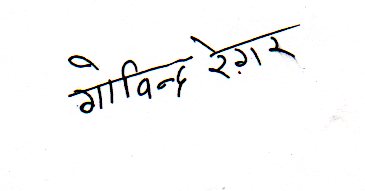 गोविन्द रेग़र